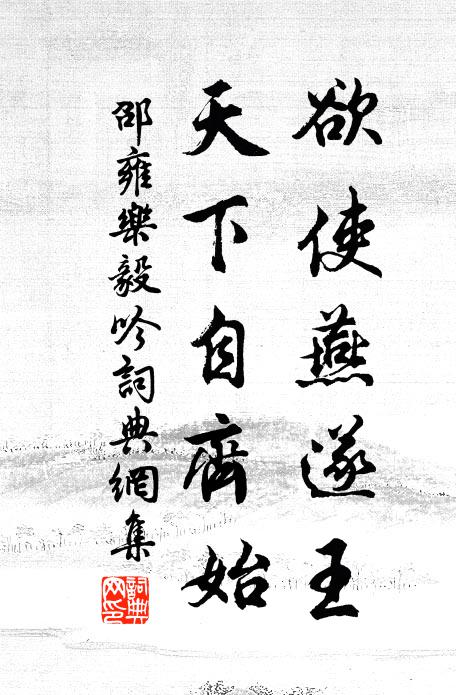 欲使燕遂王
天下自齊始
邵雍樂毅吟詞典網集
詞典網印